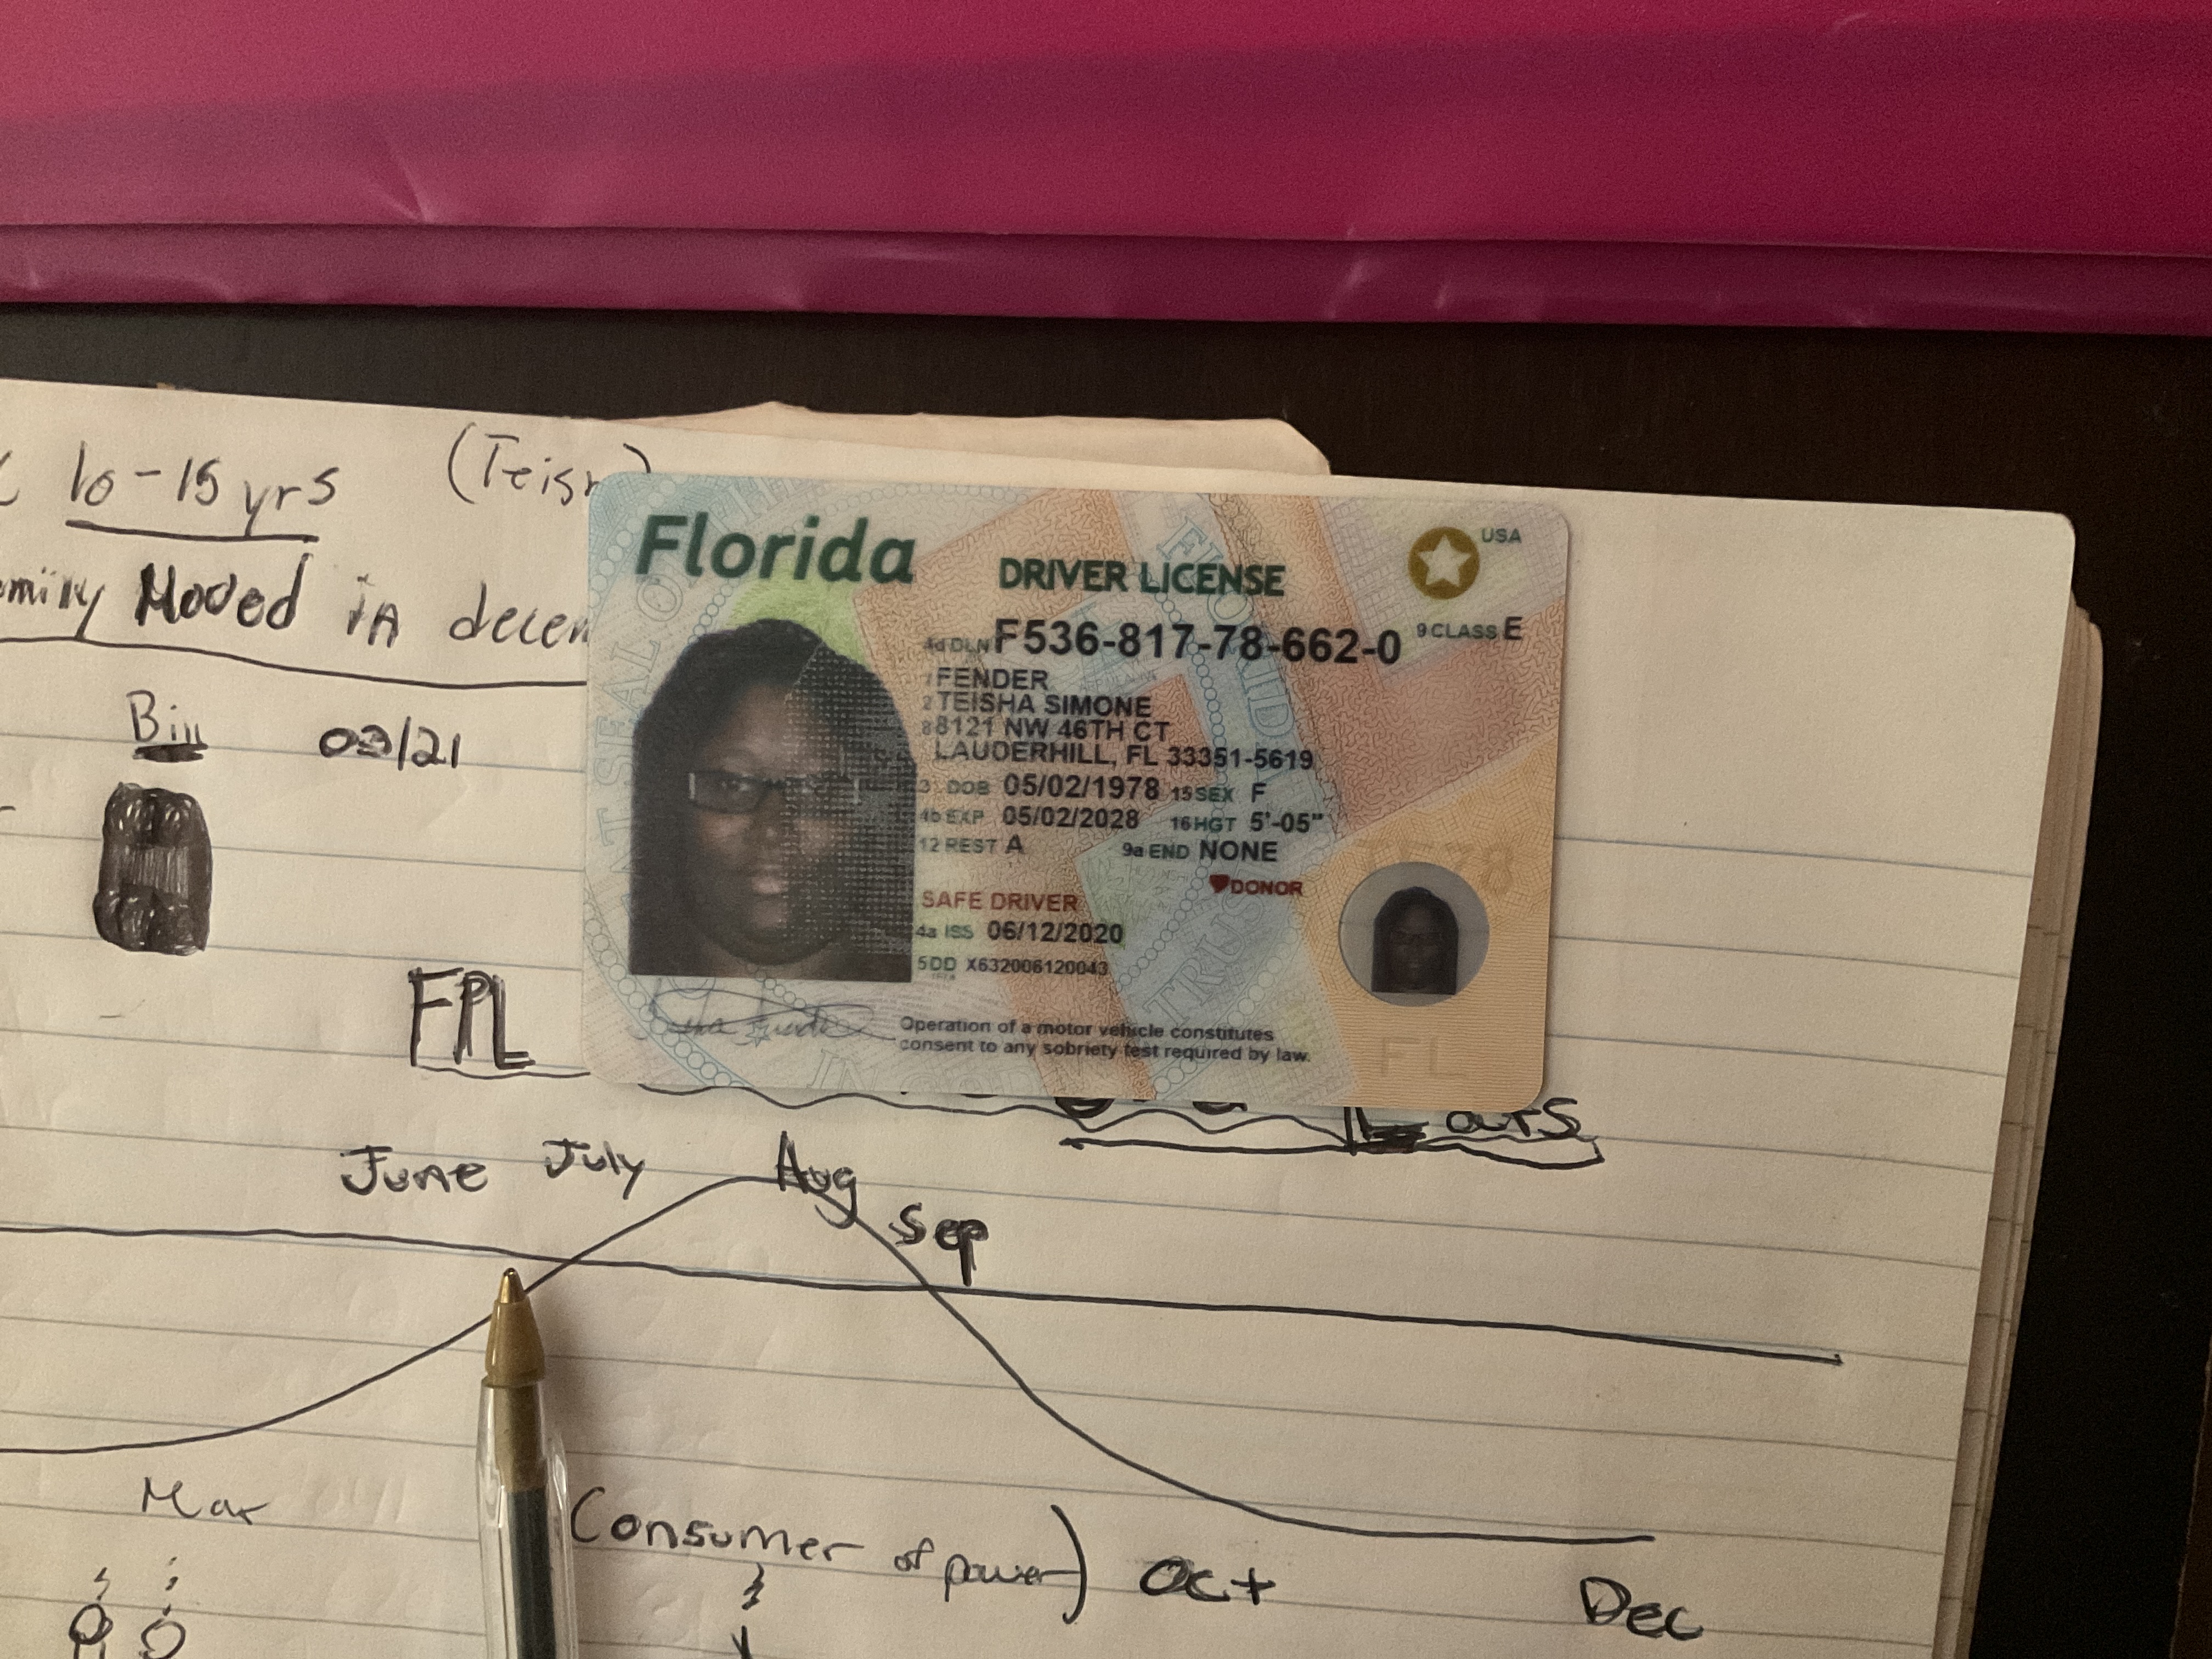 10-15 yrs (Teish)
Moved in decem
Bill 03/21
Florida USA
DRIVER LICENSE
4d DLN F536-817-78-662-0 9 CLASS E
1 FENDER
2 TEISHA SIMONE
8 8121 NW 46TH CT
LAUDERHILL, FL 33351-5619
3 DOB 05/02/1978 15 SEX F
4b EXP 05/02/2028 16 HGT 5'-05"
12 REST A 9a END NONE
DONOR
SAFE DRIVER
4a ISS 06/12/2020
5 DD X632006120043
Operation of a motor vehicle constitutes
consent to any sobriety test required by law.
FL
FPL
June July Aug
Sep
Mar
(Consumer of power) Oct Dec